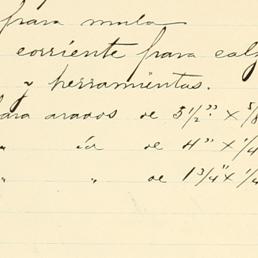 para mula
corriente para calz
y herramientas.
para arados de 3 1/2" x 5/8
" id de 4" x 1/4
" " de 1 3/4" x 1/4